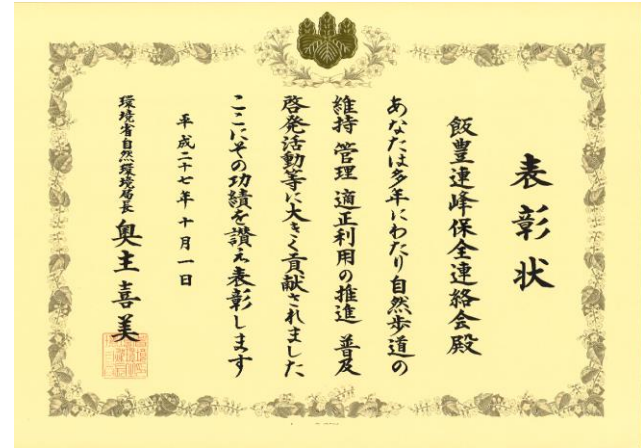 表彰状
飯豊連峰保全連絡会殿
あなたは多年にわたり自然歩道の
維持 管理 適正利用の推進 普及
啓発活動等に大きく貢献されました
ここにその功績を讃え表彰します
平成二十七年十月一日
環境省自然環境局長 奥主喜美